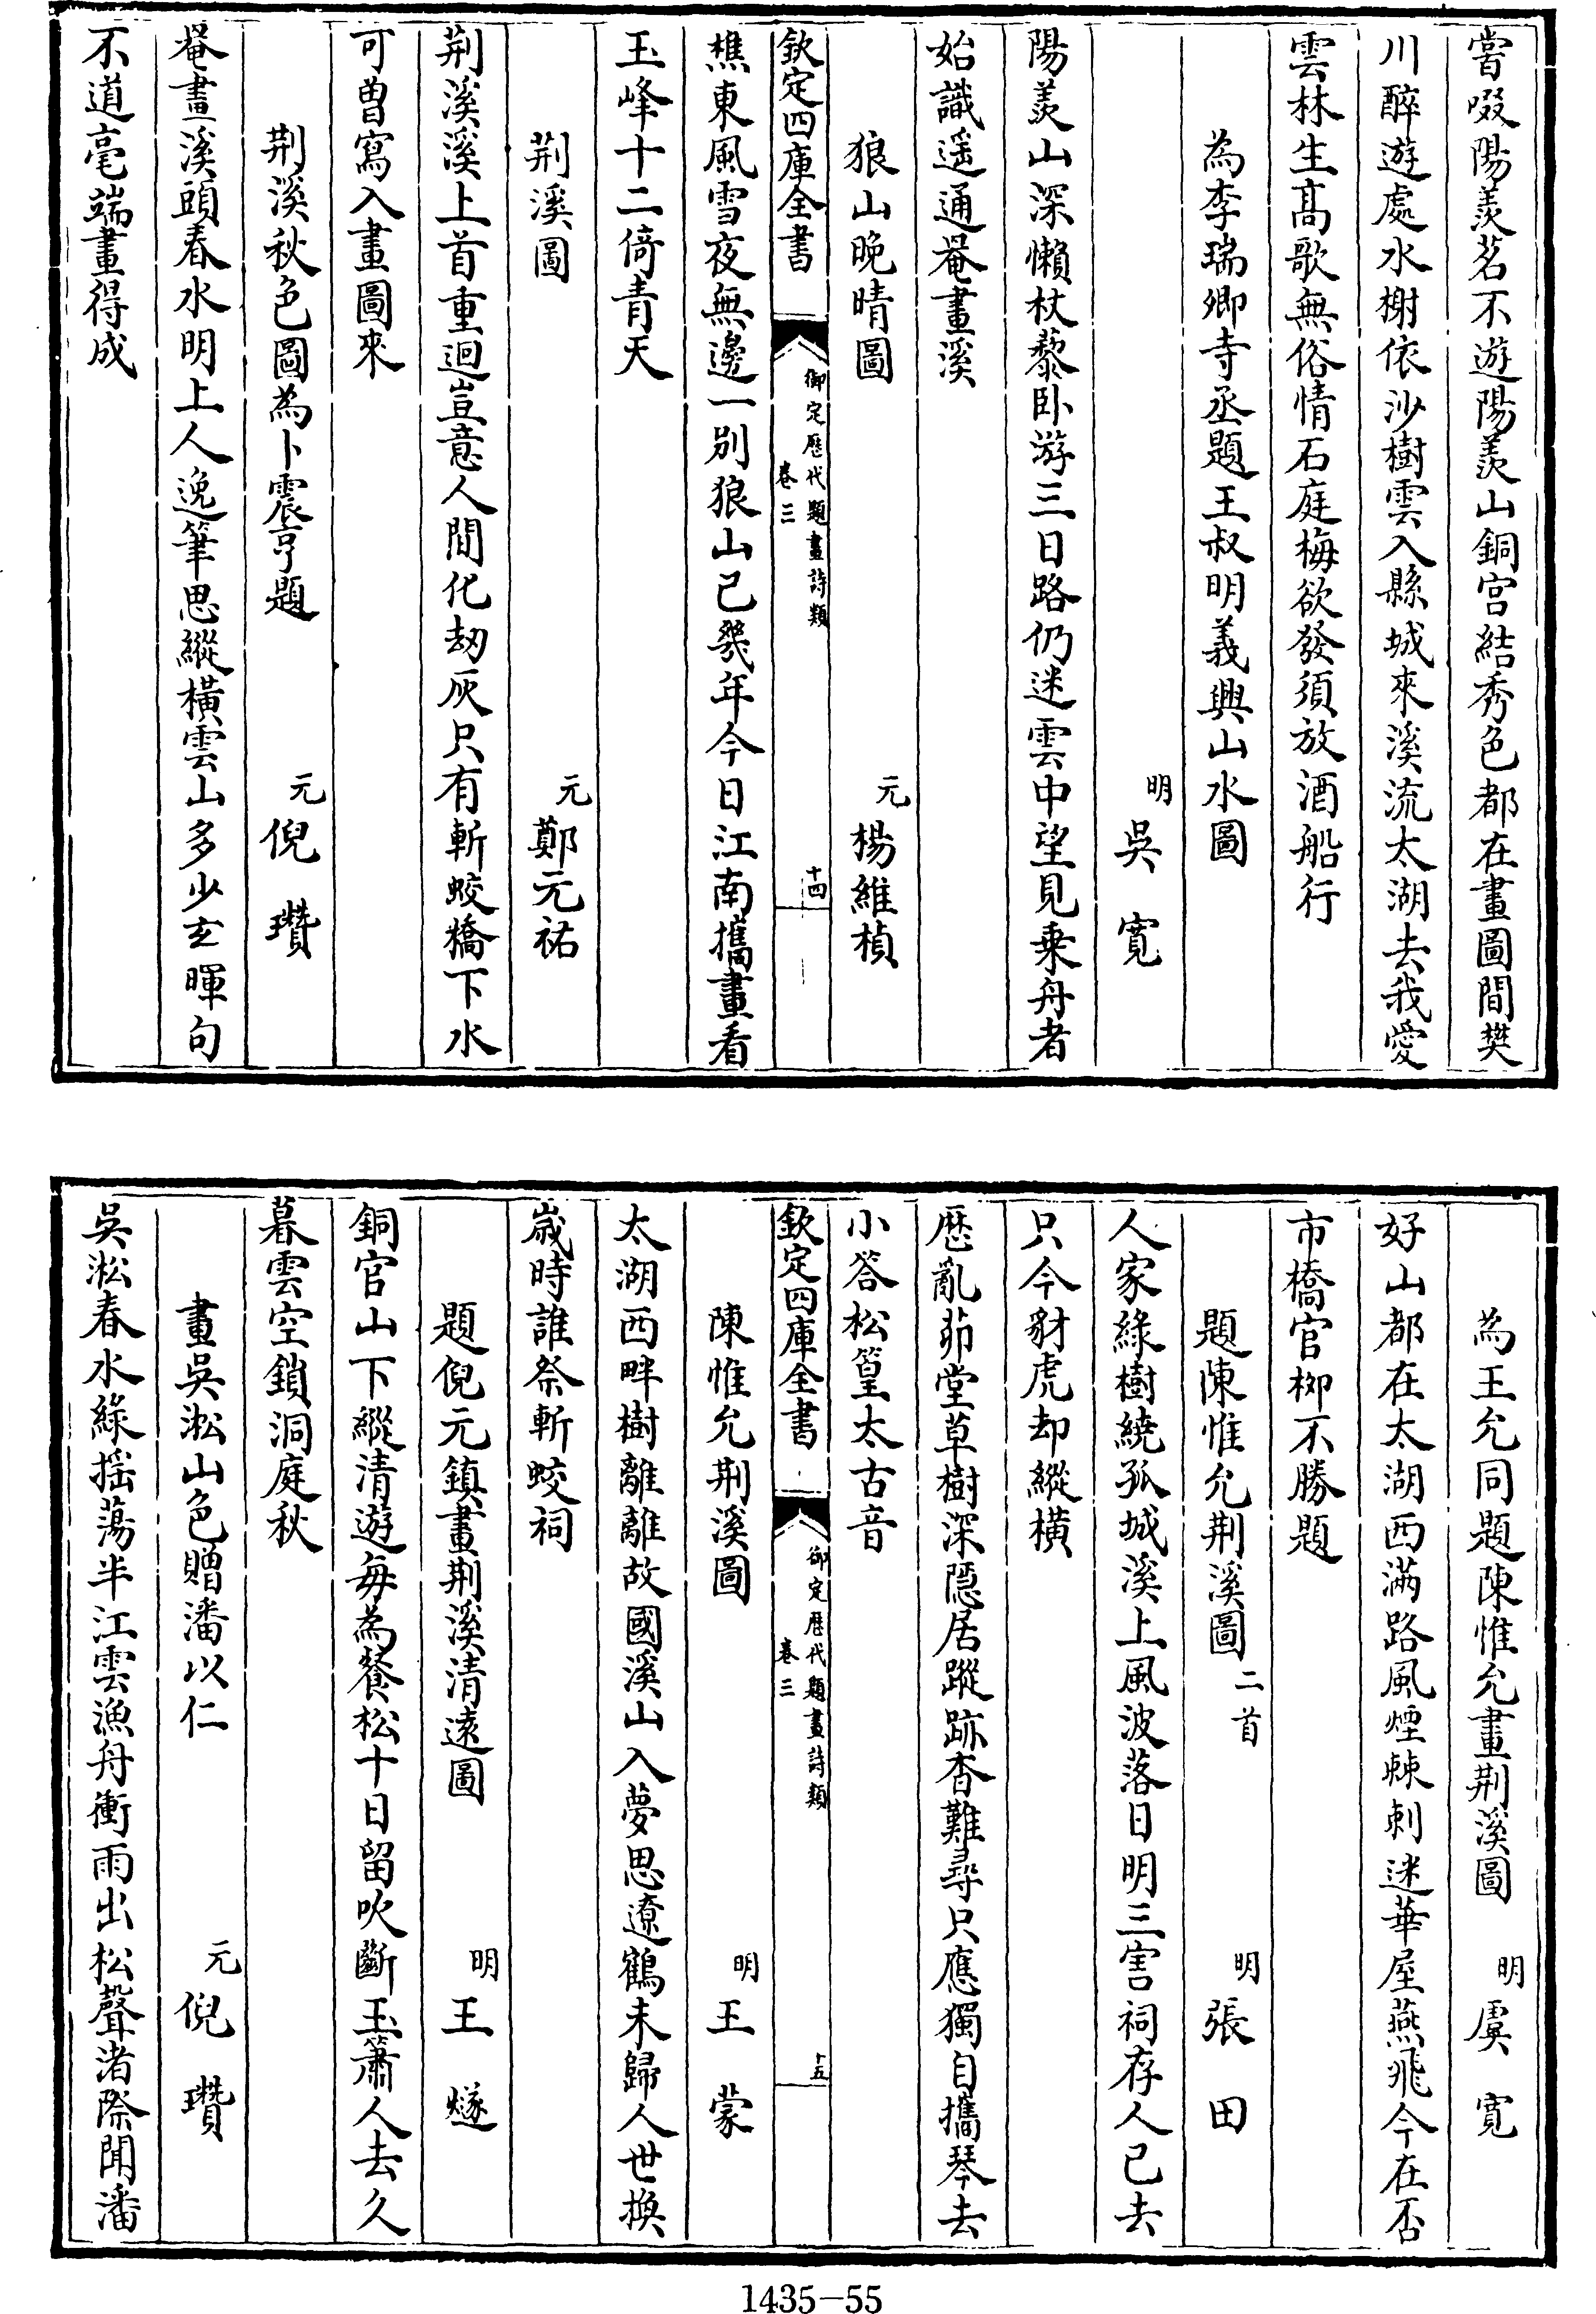 嘗啜陽羨茗不遊陽羨山銅官結秀色都在畫圖間樊
川醉遊處水榭依沙樹雲入縣城來溪流太湖去我愛
雲林生髙歌無俗情石庭梅欲發須放酒船行
為李瑞卿寺丞題王叔明義興山水圖
明吳寛
陽羨山深懶杖藜卧游三日路仍迷雲中望見乗舟者
始識遥通罨畫溪
狼山晚晴圖 元楊維楨
欽定四庫全書
御定歴代題畫詩類
卷三
十四
樵東風雪夜無邊一别狼山已幾年今日江南攜畫看
玉峰十二倚青天
荆溪圖 元鄭元祐
荆溪溪上首重迴豈意人間化刼灰只有斬蛟橋下水
可曽寫入畫圖來
荆溪秋色圖為卜震亨題 元倪瓚
罨畫溪頭春水明上人逸筆思縱橫雲山多少玄暉句
不道毫端畫得成
為王允同題陳惟允畫荆溪圖 明虞寛
好山都在太湖西滿路風煙棘刺迷華屋燕飛今在否
市橋官栁不勝題
題陳惟允荆溪圖二首 明張田
人家綠樹繞孤城溪上風波落日明三害祠存人已去
只今豺虎却縱橫
歴亂茆堂草樹深隱居蹤跡杳難尋只應獨自攜琴去
小答松篁太古音
欽定四庫全書
御定歴代題畫詩類
卷三
十五
陳惟允荆溪圖 明王蒙
太湖西畔樹離離故國溪山入夢思遼鶴未歸人世換
歳時誰祭斬蛟祠
題倪元鎮畫荆溪清遠圖 明王燧
銅官山下縱清遊每為餐松十日留吹斷玉簫人去久
暮雲空鎖洞庭秋
畫吳淞山色贈潘以仁 元倪瓚
吳淞春水綠揺蕩半江雲漁舟衝雨出松聲渚際聞潘
1435-55